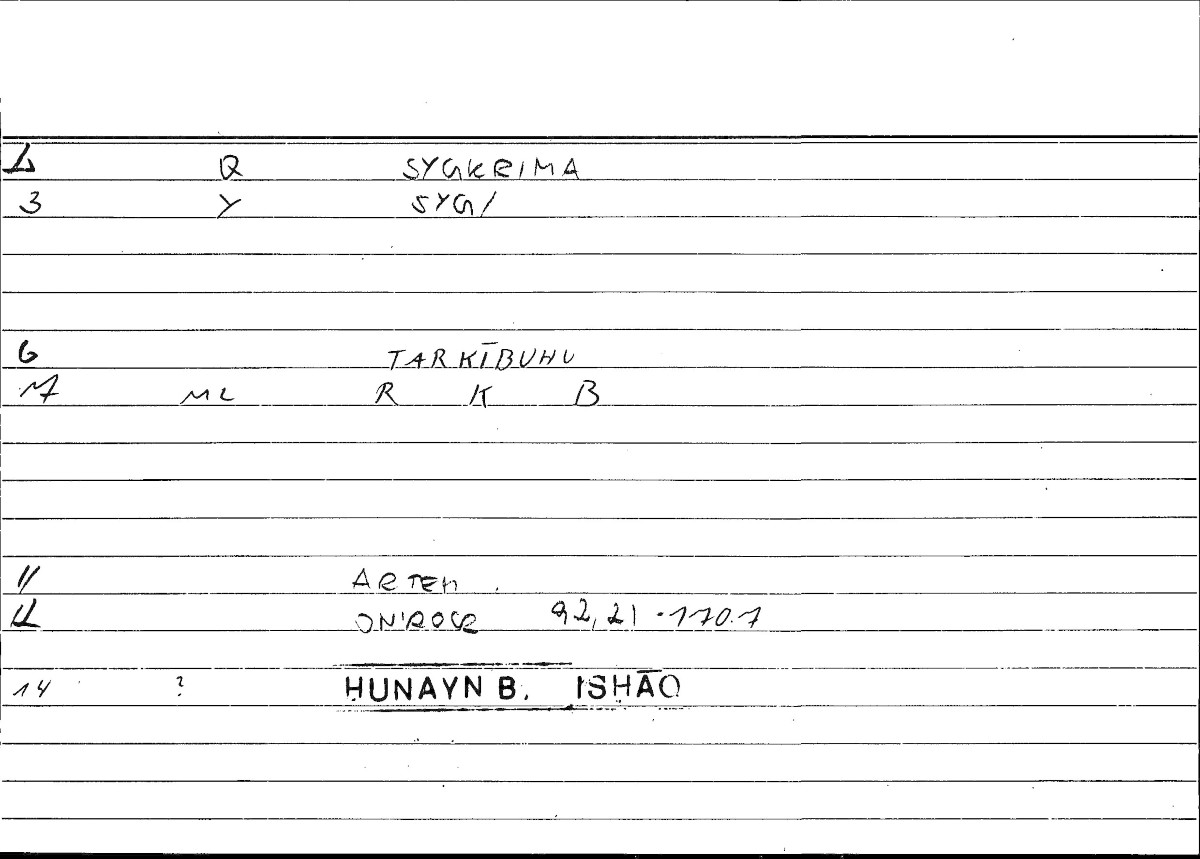 2 Q SYGKRIMA
3 Y SYG/
6 TARKĪBUHU
7 ML R K B
11 ARTEM.
12 ONIROCR 92,21 - 170.7
14 ? ḤUNAYN B. ISḤĀQ